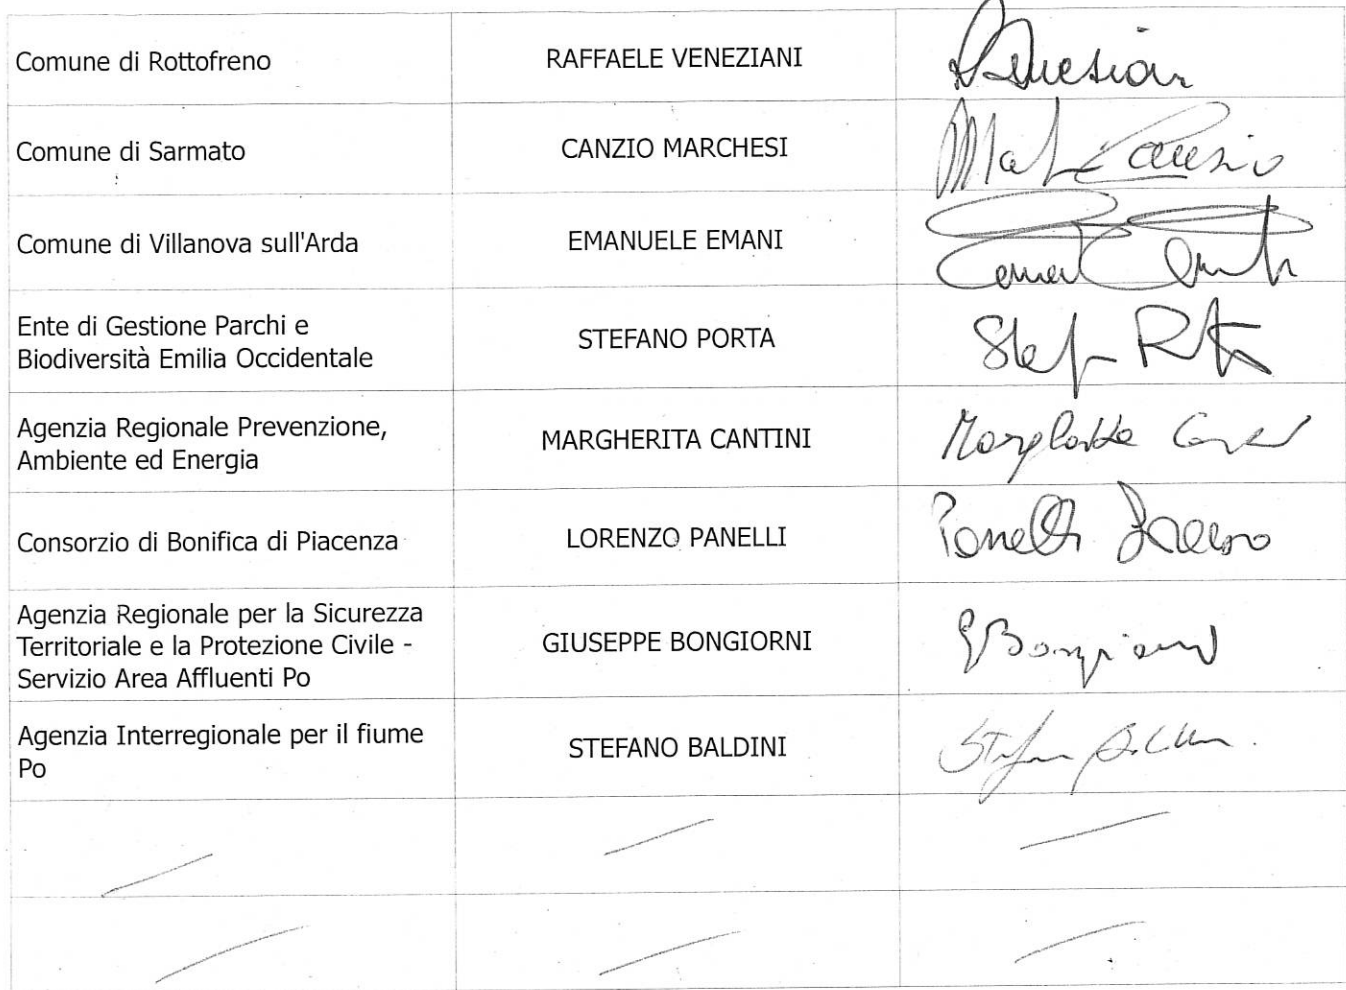 Comune di Rottofreno
RAFFAELE VENEZIANI
Comune di Sarmato
CANZIO MARCHESI
Comune di Villanova sull'Arda
EMANUELE EMANI
Ente di Gestione Parchi e
Biodiversità Emilia Occidentale
STEFANO PORTA
Stefano Porta
Agenzia Regionale Prevenzione,
Ambiente ed Energia
MARGHERITA CANTINI
Margherita
Consorzio di Bonifica di Piacenza
LORENZO PANELLI
Panelli Lorenzo
Agenzia Regionale per la Sicurezza
Territoriale e la Protezione Civile -
Servizio Area Affluenti Po
GIUSEPPE BONGIORNI
GBongiorni
Agenzia Interregionale per il fiume
Po
STEFANO BALDINI
Stefano